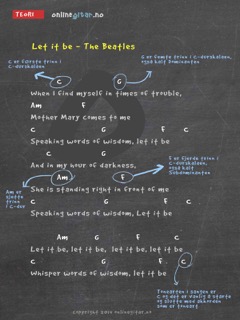 TEORI onlinegitar.no
Let it be - The Beatles
C er første trinn i C-durskalaen
G er femte trinn i C-durskalaen, også kalt Dominanten
C G
When I find myself in times of trouble,
Am F
Mother Mary comes to me
C G F C
Speaking words of wisdom, let it be
C G
And in my hour of darkness,
F er fjerde trinn i C-durskalaen, også kalt Subdominanten
Am F
Am er sjette trinn i C-dur
She is standing right in front of me
C G F C
Speaking words of wisdom, Let it be
Am G F C
Let it be, let it be, let it be, let it be
C G F C
Whisper words of wisdom, let it be
Tonearten i sangen er C og det er vanlig å starte og slutte med akkorden som er toneart
Copyright Kåre onlinegitar.no